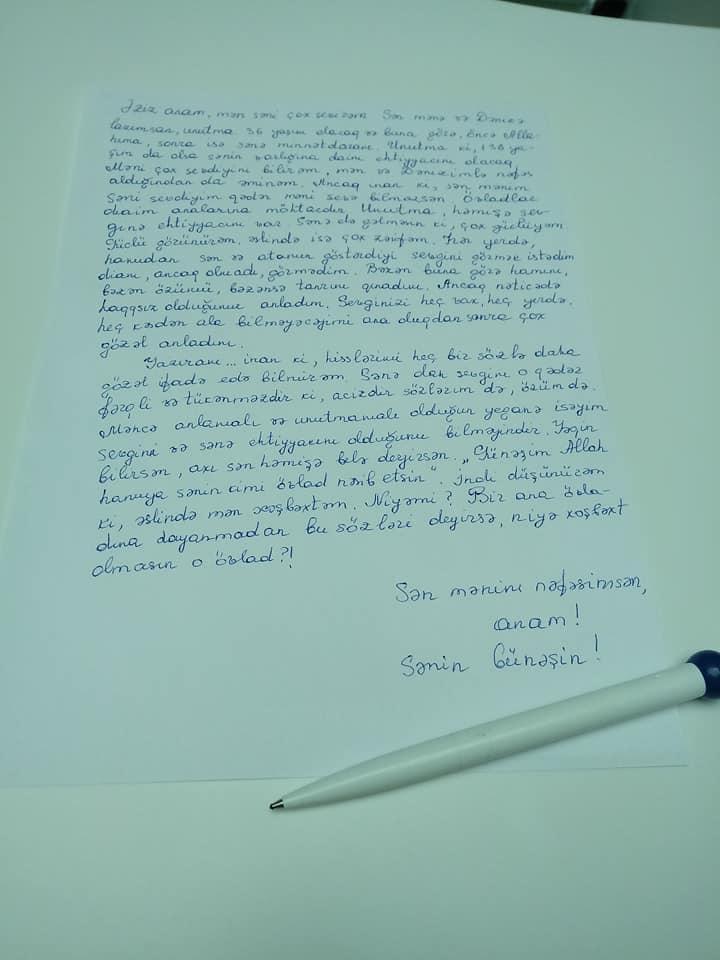 Əziz anam, mən səni çox sevirəm. Sən mənə və Dənizə
lazımsan, unutma. 36 yaşım olacaq və buna görə, öncə Alla-
hıma, sonra isə sənə minnətdaram. Unutma ki, 136 ya-
şım da olsa sənin varlığına daim ehtiyyacım olacaq.
Məni çox sevdiyini bilirəm, mən və Dənizimlə nəfəs
aldığından da əminəm. Ancaq inan ki, sən mənim
Səni sevdiyim qədər məni sevə bilməzsən. Övladlar
daim analarına möhtacdır. Unutma, həmişə sev-
ginə ehtiyyacım var. Sənə elə gəlməsin ki, çox güclüyəm.
Güclü görünürəm, əslində isə çox zəifəm. Hər yerdə,
hamıdan sən və atamın göstərdiyi sevgini görmək istədim
diam, ancaq olmadı, görmədim. Bəzən buna görə hamını,
bəzən özümü, bəzənsə tanrını qınadım. Ancaq nəticədə
haqqsız olduğumu anladım. Sevginizi heç vax, heç yerdə,
heç kəsdən ala bilməyəcəyimi ana olduqdan sonra çox
gözəl anladım.
Yazıram... inan ki, hisslərimi heç bir sözlə daha
gözəl ifadə edə bilmirəm. Sənə olan sevgim o qədər
fərqli və tükənməzdir ki, acizdir sözlərim də, özüm də.
Məncə anlamalı və unutmamalı olduğun yeganə isəyim
sevgimi və sənə ehtiyyacım olduğunu bilməyindir. Yəqin
bilirsən, axı sən həmişə belə deyirsən. „Günəşim Allah
hamıya sənin kimi övlad nəsib etsin". İndi düşünürəm
ki, əslində mən xoşbəxtəm. Niyəmi? Bir ana övla-
dına dayanmadan bu sözləri deyirsə, niyə xoşbəxt
olmasın o övlad?!
Sən mənim nəfəsimsən,
anam!
Sənin Günəşin!